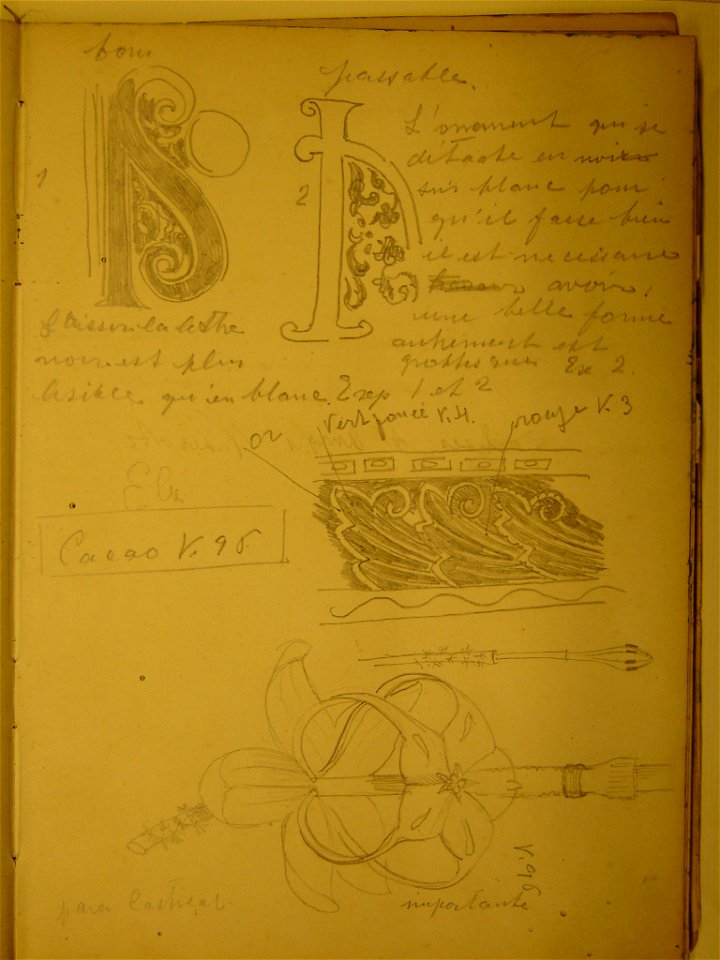 bon
passable.
1
2
L'ornement qui se
détache en noir
sur blanc pour
qu'il fasse bien
il est necessaire
avoir
une belle forme
autrement est
grottesque Ex 2.
la lettre
noir est plus
lisible qu'en blanc Exp 1 et 2
or
vert foncé V.4.
rouge V.3
Cacao V.96.
V.96
para
importante